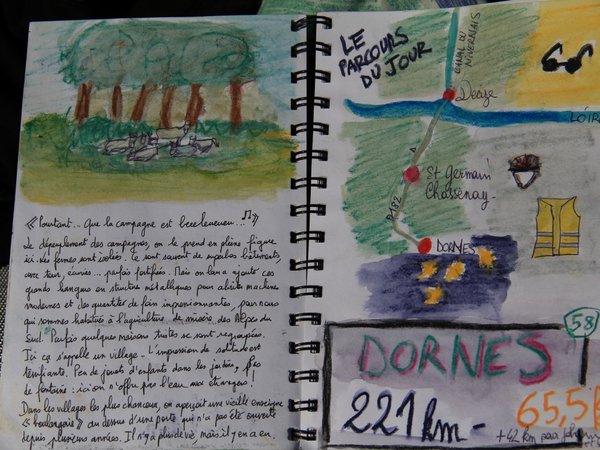 « Pourtant... Que la campagne est beeeleueueu... »
Le dépeuplement des campagnes, on le prend en pleine figure
ici. Les fermes sont isolées. Ce sont souvent de superbes bâtiments
avec tour, écuries... parfois fortifiées. Mais on leur a ajouté ces
grands hangars en structure métalliques pour abriter machines
modernes et des quantités de foin impressionnantes, pour nous
qui sommes habitués à l'agriculture de misère des Alpes du
Sud. Parfois quelques maisons tristes se sont regroupées.
Ici ça s'appelle un village. L'impression de solitude est
terrifiante. Peu de jouets d'enfants dans les jardins, pas
de fontaine : ici on n'offre pas l'eau aux étrangers !
Dans les villages les plus chanceux, on aperçoit une vieille enseigne
« boulangerie » au dessus d'une porte qui n'a pas été ouverte
depuis plusieurs années. Il n'y a plus de vie mais il y en a eu.
LE
PARCOURS
DU JOUR
CANAL DU
NIVERNAIS
Decize
LOIR
St Germain
Chassenay
D182
DORNES
58
DORNES
221 km
65,5
+42 km pour